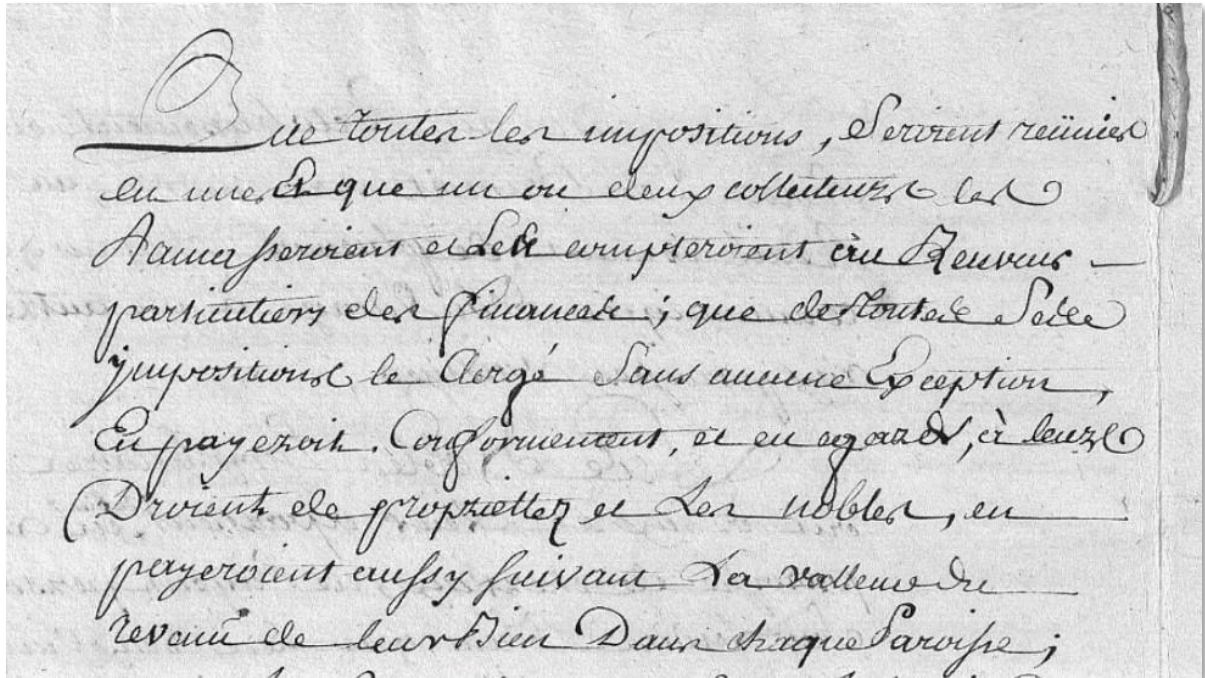 Que toutes les impositions, Seroient reünies
en une Et que un ou deux collecteurs les
Ramasseroient et Les compteroient au Reuveur
particuliers des finances ; que de Toutes Sede
jmpositions le Clergé Sans aucune Exception,
En payeroit. Conformement, et en egard, à leurs
Droient de propriettez et Les nobles, en
payeroient aussy suivant La valleure du
revenu de leurs Bien Dans chaque Paroisse ;